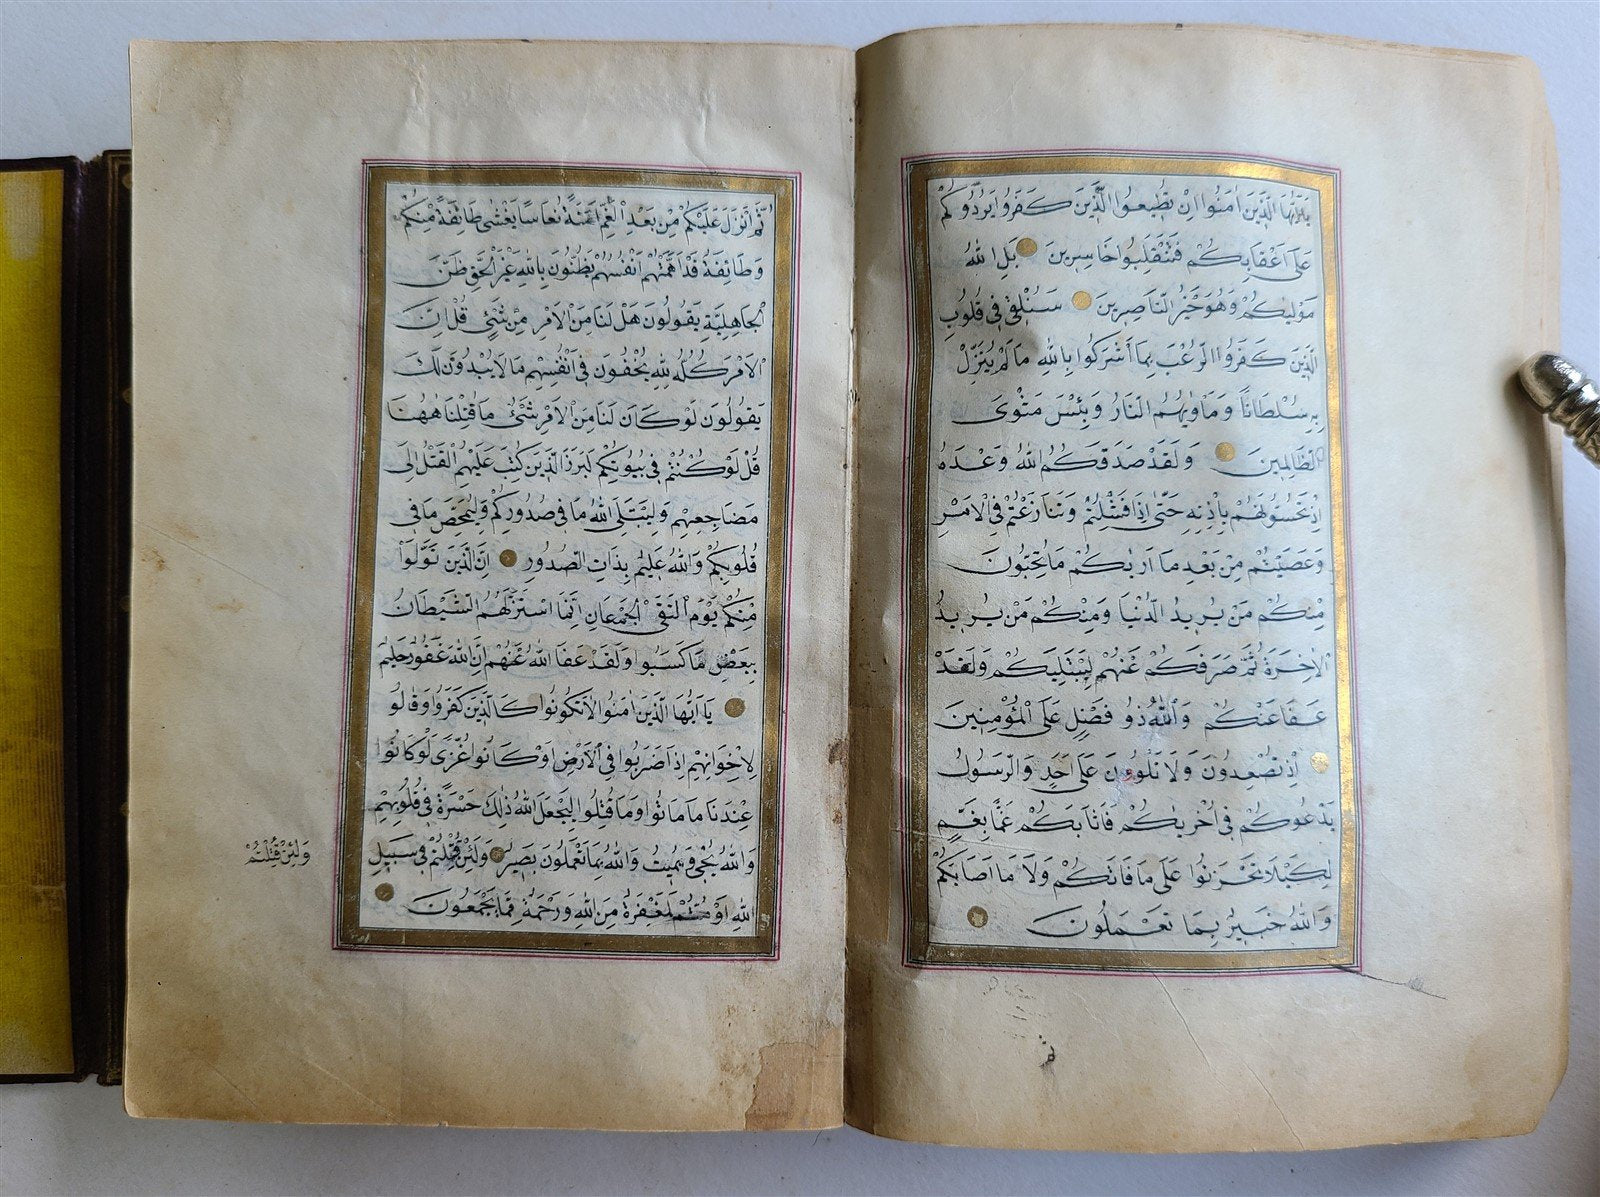 يَا اَيُّهَا الَّذٖينَ اٰمَنُوا اِنْ تُطٖيعُوا الَّذٖينَ كَفَرُوا يَرُدُّوكُمْ
عَلٰى اَعْقَابِكُمْ فَتَنْقَلِبُوا خَاسِرٖينَ بَلِ اللّٰهُ
مَوْلٰيكُمْ وَهُوَ خَيْرُ النَّاصِرٖينَ سَنُلْقٖى فٖى قُلُوبِ
الَّذٖينَ كَفَرُوا الرُّعْبَ بِمَا اَشْرَكُوا بِاللّٰهِ مَا لَمْ يُنَزِّلْ
بِهٖ سُلْطَانًا وَمَاْوٰيهُمُ النَّارُ وَبِئْسَ مَثْوَى
الظَّالِمٖينَ وَلَقَدْ صَدَقَكُمُ اللّٰهُ وَعْدَهُ
اِذْ تَحُسُّونَهُمْ بِاِذْنِهٖ حَتّٰى اِذَا فَشِلْتُمْ وَتَنَازَعْتُمْ فِى الْاَمْرِ
وَعَصَيْتُمْ مِنْ بَعْدِ مَا اَرٰيكُمْ مَا تُحِبُّونَ
مِنْكُمْ مَنْ يُرٖيدُ الدُّنْيَا وَمِنْكُمْ مَنْ يُرٖيدُ
الْاٰخِرَةَ ثُمَّ صَرَفَكُمْ عَنْهُمْ لِيَبْتَلِيَكُمْ وَلَقَدْ
عَفَا عَنْكُمْ وَاللّٰهُ ذُو فَضْلٍ عَلَى الْمُؤْمِنٖينَ
اِذْ تُصْعِدُونَ وَلَا تَلْوُونَ عَلٰى اَحَدٍ وَالرَّسُولُ
يَدْعُوكُمْ فٖى اُخْرٰيكُمْ فَاَثَابَكُمْ غَمًّا بِغَمٍّ
لِكَيْلَا تَحْزَنُوا عَلٰى مَا فَاتَكُمْ وَلَا مَا اَصَابَكُمْ
وَاللّٰهُ خَبٖيرٌ بِمَا تَعْمَلُونَ
ثُمَّ اَنْزَلَ عَلَيْكُمْ مِنْ بَعْدِ الْغَمِّ اَمَنَةً نُعَاسًا يَغْشٰى طَائِفَةً مِنْكُمْ
وَطَائِفَةٌ قَدْ اَهَمَّتْهُمْ اَنْفُسُهُمْ يَظُنُّونَ بِاللّٰهِ غَيْرَ الْحَقِّ ظَنَّ
الْجَاهِلِيَّةِ يَقُولُونَ هَلْ لَنَا مِنَ الْاَمْرِ مِنْ شَىْءٍ قُلْ اِنَّ
الْاَمْرَ كُلَّهُ لِلّٰهِ يُخْفُونَ فٖى اَنْفُسِهِمْ مَا لَا يُبْدُونَ لَكَ
يَقُولُونَ لَوْ كَانَ لَنَا مِنَ الْاَمْرِ شَىْءٌ مَا قُتِلْنَا هٰهُنَا
قُلْ لَوْ كُنْتُمْ فٖى بُيُوتِكُمْ لَبَرَزَ الَّذٖينَ كُتِبَ عَلَيْهِمُ الْقَتْلُ اِلٰى
مَضَاجِعِهِمْ وَلِيَبْتَلِىَ اللّٰهُ مَا فٖى صُدُورِكُمْ وَلِيُمَحِّصَ مَا فٖى
قُلُوبِكُمْ وَاللّٰهُ عَلٖيمٌ بِذَاتِ الصُّدُورِ اِنَّ الَّذٖينَ تَوَلَّوْا
مِنْكُمْ يَوْمَ الْتَقَى الْجَمْعَانِ اِنَّمَا اسْتَزَلَّهُمُ الشَّيْطَانُ
بِبَعْضِ مَا كَسَبُوا وَلَقَدْ عَفَا اللّٰهُ عَنْهُمْ اِنَّ اللّٰهَ غَفُورٌ حَلٖيمٌ
يَا اَيُّهَا الَّذٖينَ اٰمَنُوا لَا تَكُونُوا كَالَّذٖينَ كَفَرُوا وَقَالُوا
لِاِخْوَانِهِمْ اِذَا ضَرَبُوا فِى الْاَرْضِ اَوْ كَانُوا غُزًّى لَوْ كَانُوا
عِنْدَنَا مَا مَاتُوا وَمَا قُتِلُوا لِيَجْعَلَ اللّٰهُ ذٰلِكَ حَسْرَةً فٖى قُلُوبِهِمْ
وَاللّٰهُ يُحْيٖى وَيُمٖيتُ وَاللّٰهُ بِمَا تَعْمَلُونَ بَصٖيرٌ وَلَئِنْ قُتِلْتُمْ فٖى سَبٖيلِ
اللّٰهِ اَوْ مُتُّمْ لَمَغْفِرَةٌ مِنَ اللّٰهِ وَرَحْمَةٌ مِمَّا يَجْمَعُونَ
وَلَئِنْ قُتِلْتُمْ